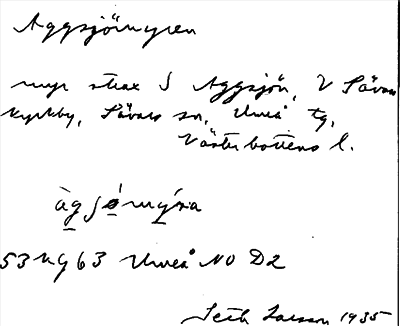 Aggsjömyren
myr strax S Aggsjön, V Sävars
kyrkby, Sävars sn, Umeå tg,
Västerbottens l.
53 Umeå NO D2
Seth Larsson 1935